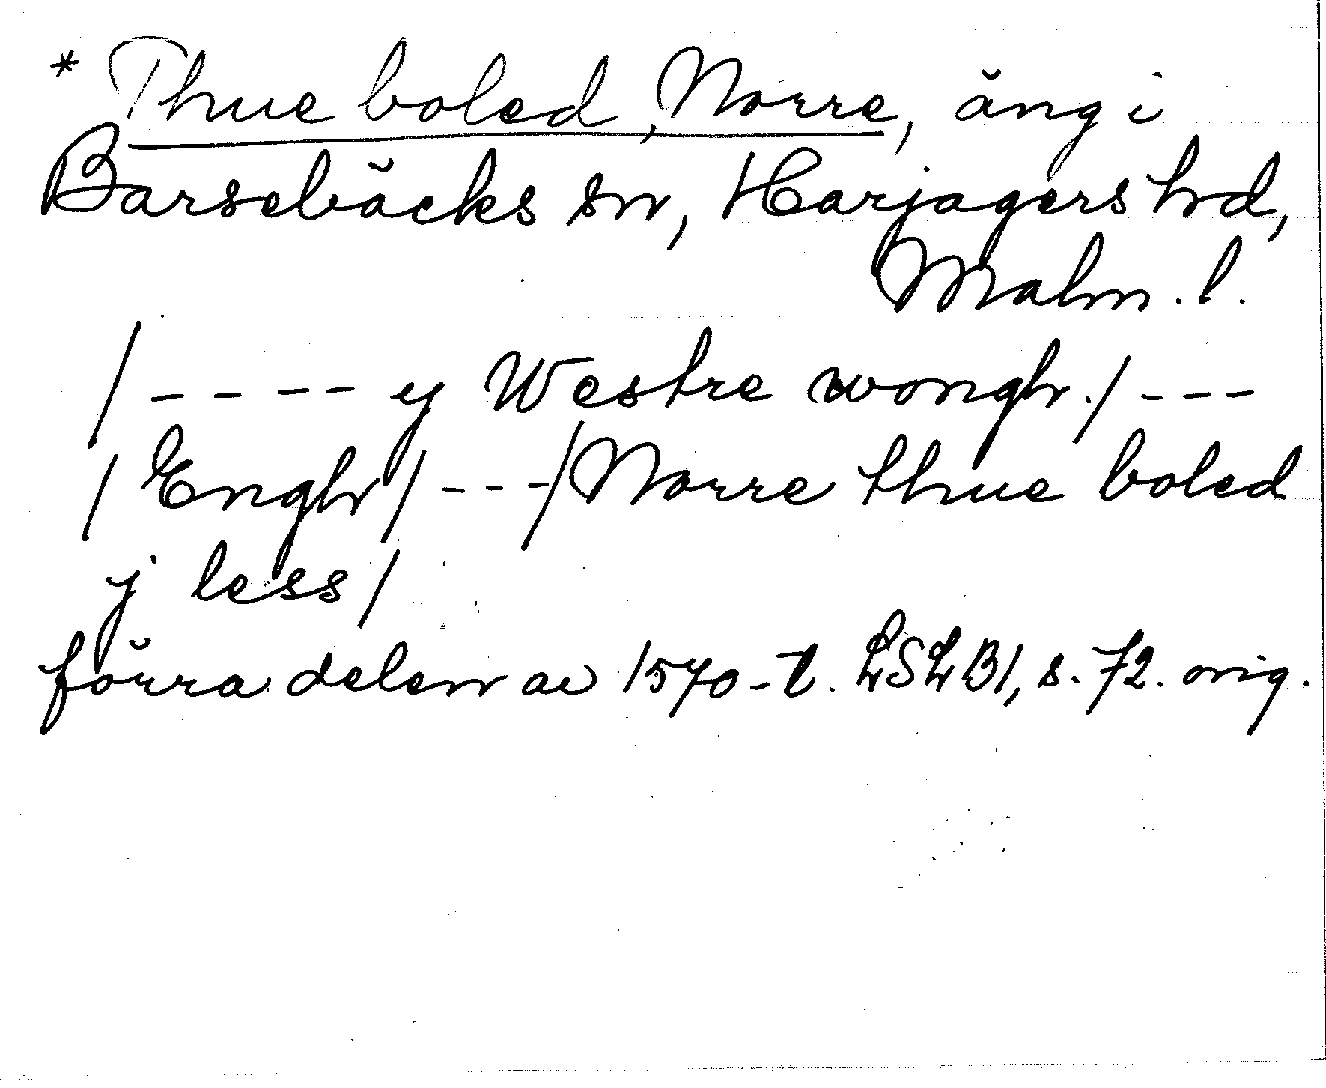 * Thue boled, Norre, äng i
Barsebäcks sn, Harjagers hrd,
Malm. l.
/ - - - - y Westre wongh. / - - -
/ Engh / - - - / Norre thue boled
j less /
förra delen av 1570-t. LSLB1, s. 72. orig.